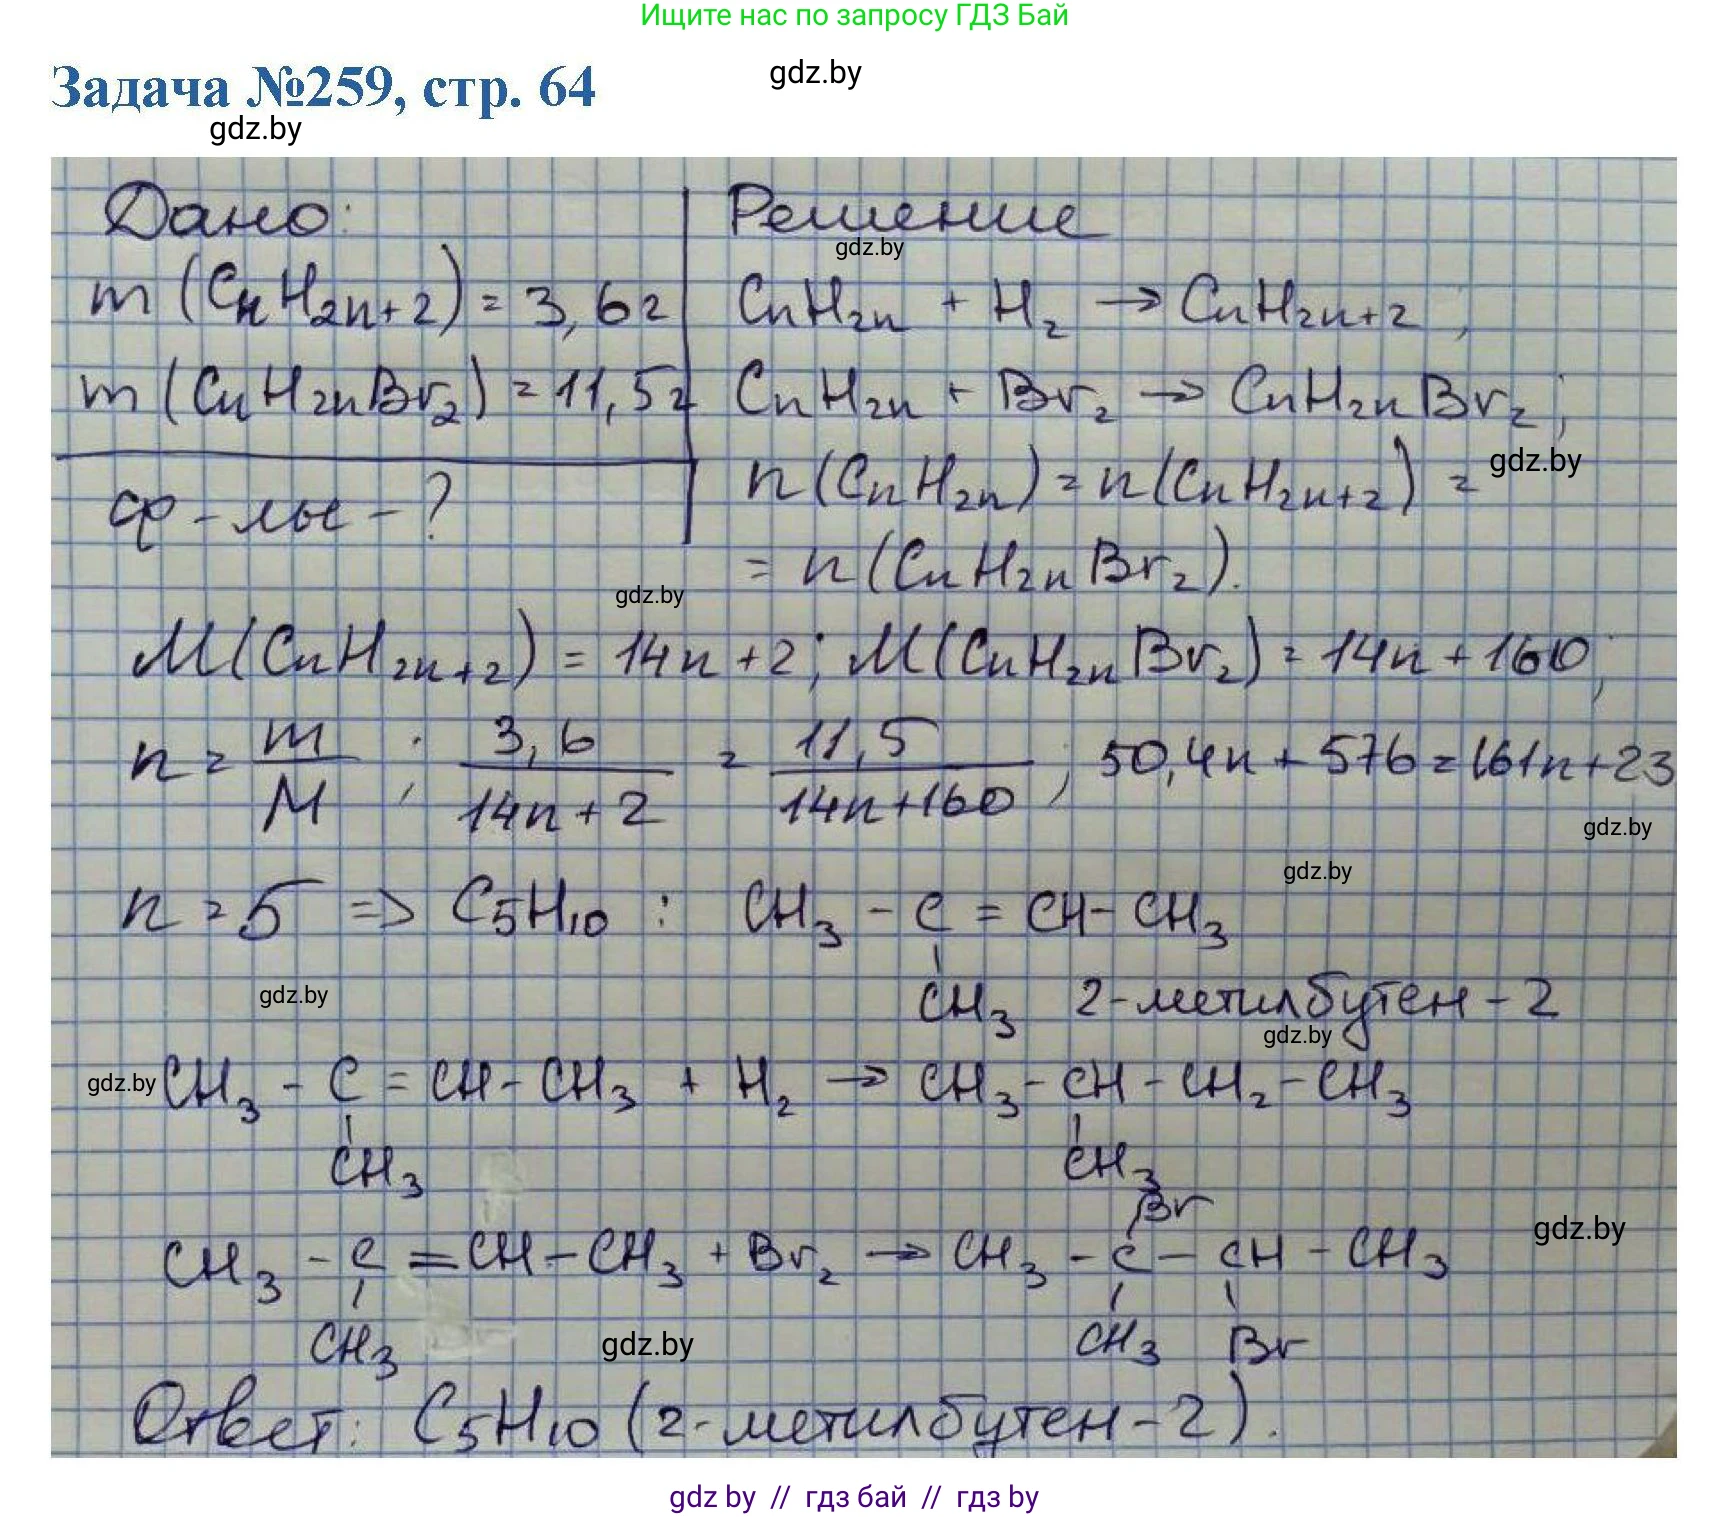 Ищите нас по запросу ГДЗ Бай
Задача №259, стр. 64
gdz.by
gdz.by
Дано:
m (CnH2n+2) = 3,6г
m (CnH2nBr2) = 11,5г
ф-лы - ?
Решение
gdz.by
CnH2n + H2 → CnH2n+2 ;
CnH2n + Br2 → CnH2nBr2 ;
n(CnH2n) = n(CnH2n+2) =
gdz.by
= n(CnH2nBr2).
gdz.by
M(CnH2n+2) = 14n+2; M(CnH2nBr2) = 14n+160;
n = m/M ; 3,6/14n+2 = 11,5/14n+160 ; 50,4n+576=161n+23
gdz.by
gdz.by
n = 5 => C5H10 : CH3 - C = CH - CH3
gdz.by
CH3 2-метилбутен-2
gdz.by
gdz.by
CH3 - C = CH - CH3 + H2 → CH3 - CH - CH2 - CH3
CH3 CH3
Br
gdz.by
CH3 - C = CH - CH3 + Br2 → CH3 - C - CH - CH3
CH3 gdz.by CH3 Br
Ответ: C5H10 (2-метилбутен-2).
gdz by // гдз бай // гдз by